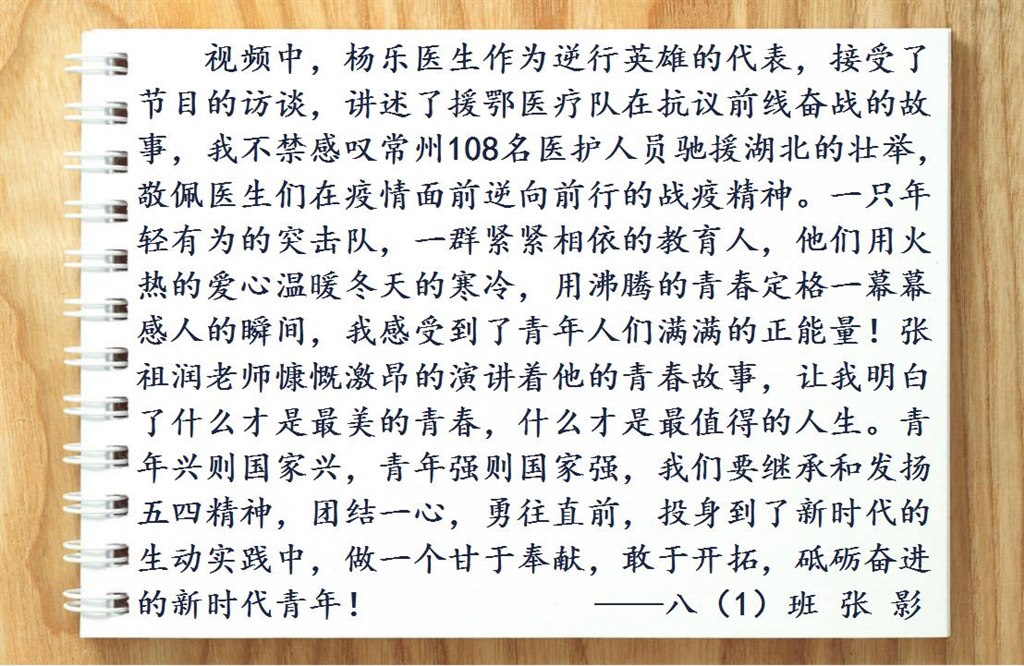 视频中，杨乐医生作为逆行英雄的代表，接受了
节目的访谈，讲述了援鄂医疗队在抗议前线奋战的故
事，我不禁感叹常州108名医护人员驰援湖北的壮举，
敬佩医生们在疫情面前逆向前行的战疫精神。一只年
轻有为的突击队，一群紧紧相依的教育人，他们用火
热的爱心温暖冬天的寒冷，用沸腾的青春定格一幕幕
感人的瞬间，我感受到了青年人们满满的正能量！张
祖润老师慷慨激昂的演讲着他的青春故事，让我明白
了什么才是最美的青春，什么才是最值得的人生。青
年兴则国家兴，青年强则国家强，我们要继承和发扬
五四精神，团结一心，勇往直前，投身到了新时代的
生动实践中，做一个甘于奉献，敢于开拓，砥砺奋进
的新时代青年！ ——八（1）班 张 影